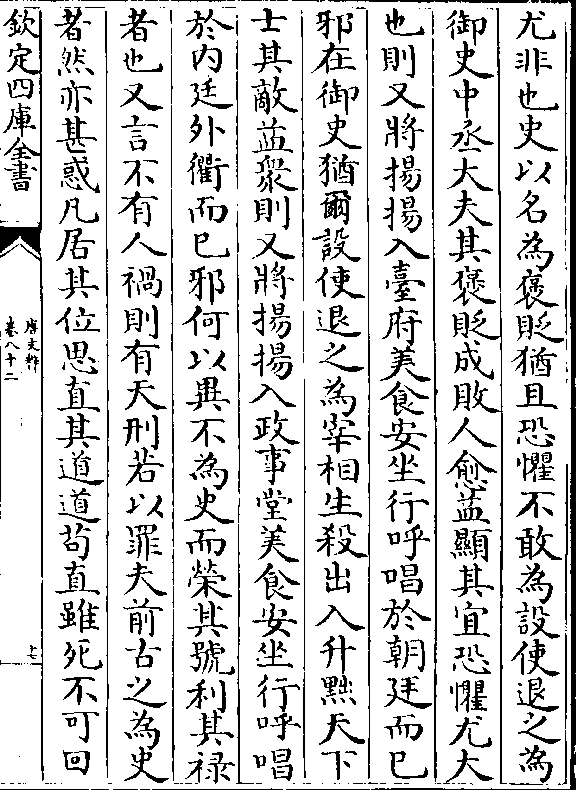 尤非也史以名為褒貶猶且恐懼不敢為設使退之為
御史中丞大夫其褒貶成敗人愈益顯其宜恐懼尤大
也則又將揚揚入臺府美食安坐行呼唱於朝廷而已
邪在御史猶爾設使退之為宰相生殺出入升黜天下
士其敵益衆則又將揚揚入政事堂美食安坐行呼唱
於内廷外衢而已邪何以異不為史而榮其號利其禄
者也又言不有人禍則有天刑若以罪夫前古之為史
者然亦甚惑凡居其位思直其道道茍直雖死不可回
欽定四庫全書
唐文粹
卷八十二
十七